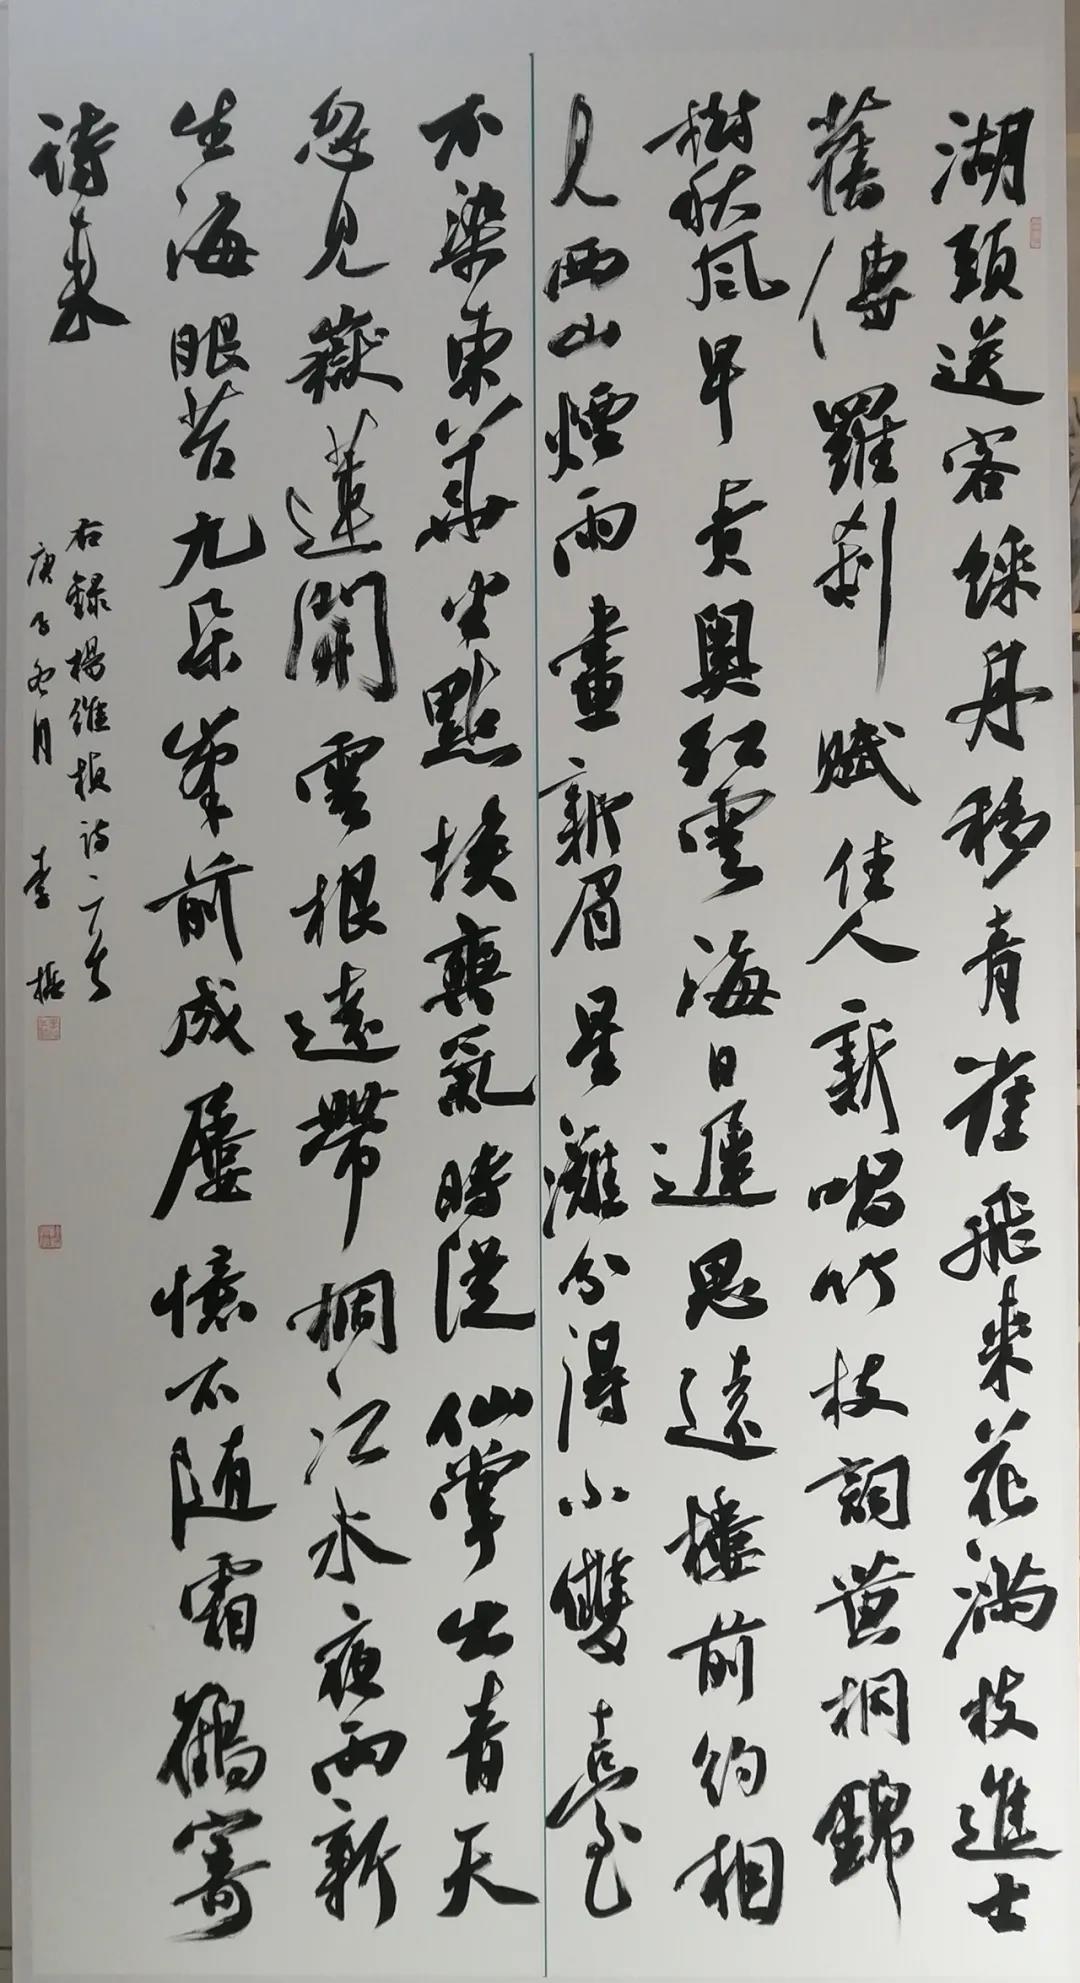 湖頭送客綵舟移青雀飛來花滿枝進士
舊傳羅刹賦佳人新唱竹枝詞黄桐錦
樹秋風早貢紅雲海日遲思遠樓前約相
見西山煙雨畫新眉星灘分得小雙臺
不染東華半點埃爽氣時從仙掌出青天
忽見嶽蓮開雲根遠帶桐江水夜雨新
生海眼苔九朵峯前成屢憶不随霜鶴寄
詩来
右録楊維楨詩二首
庚子冬月 李